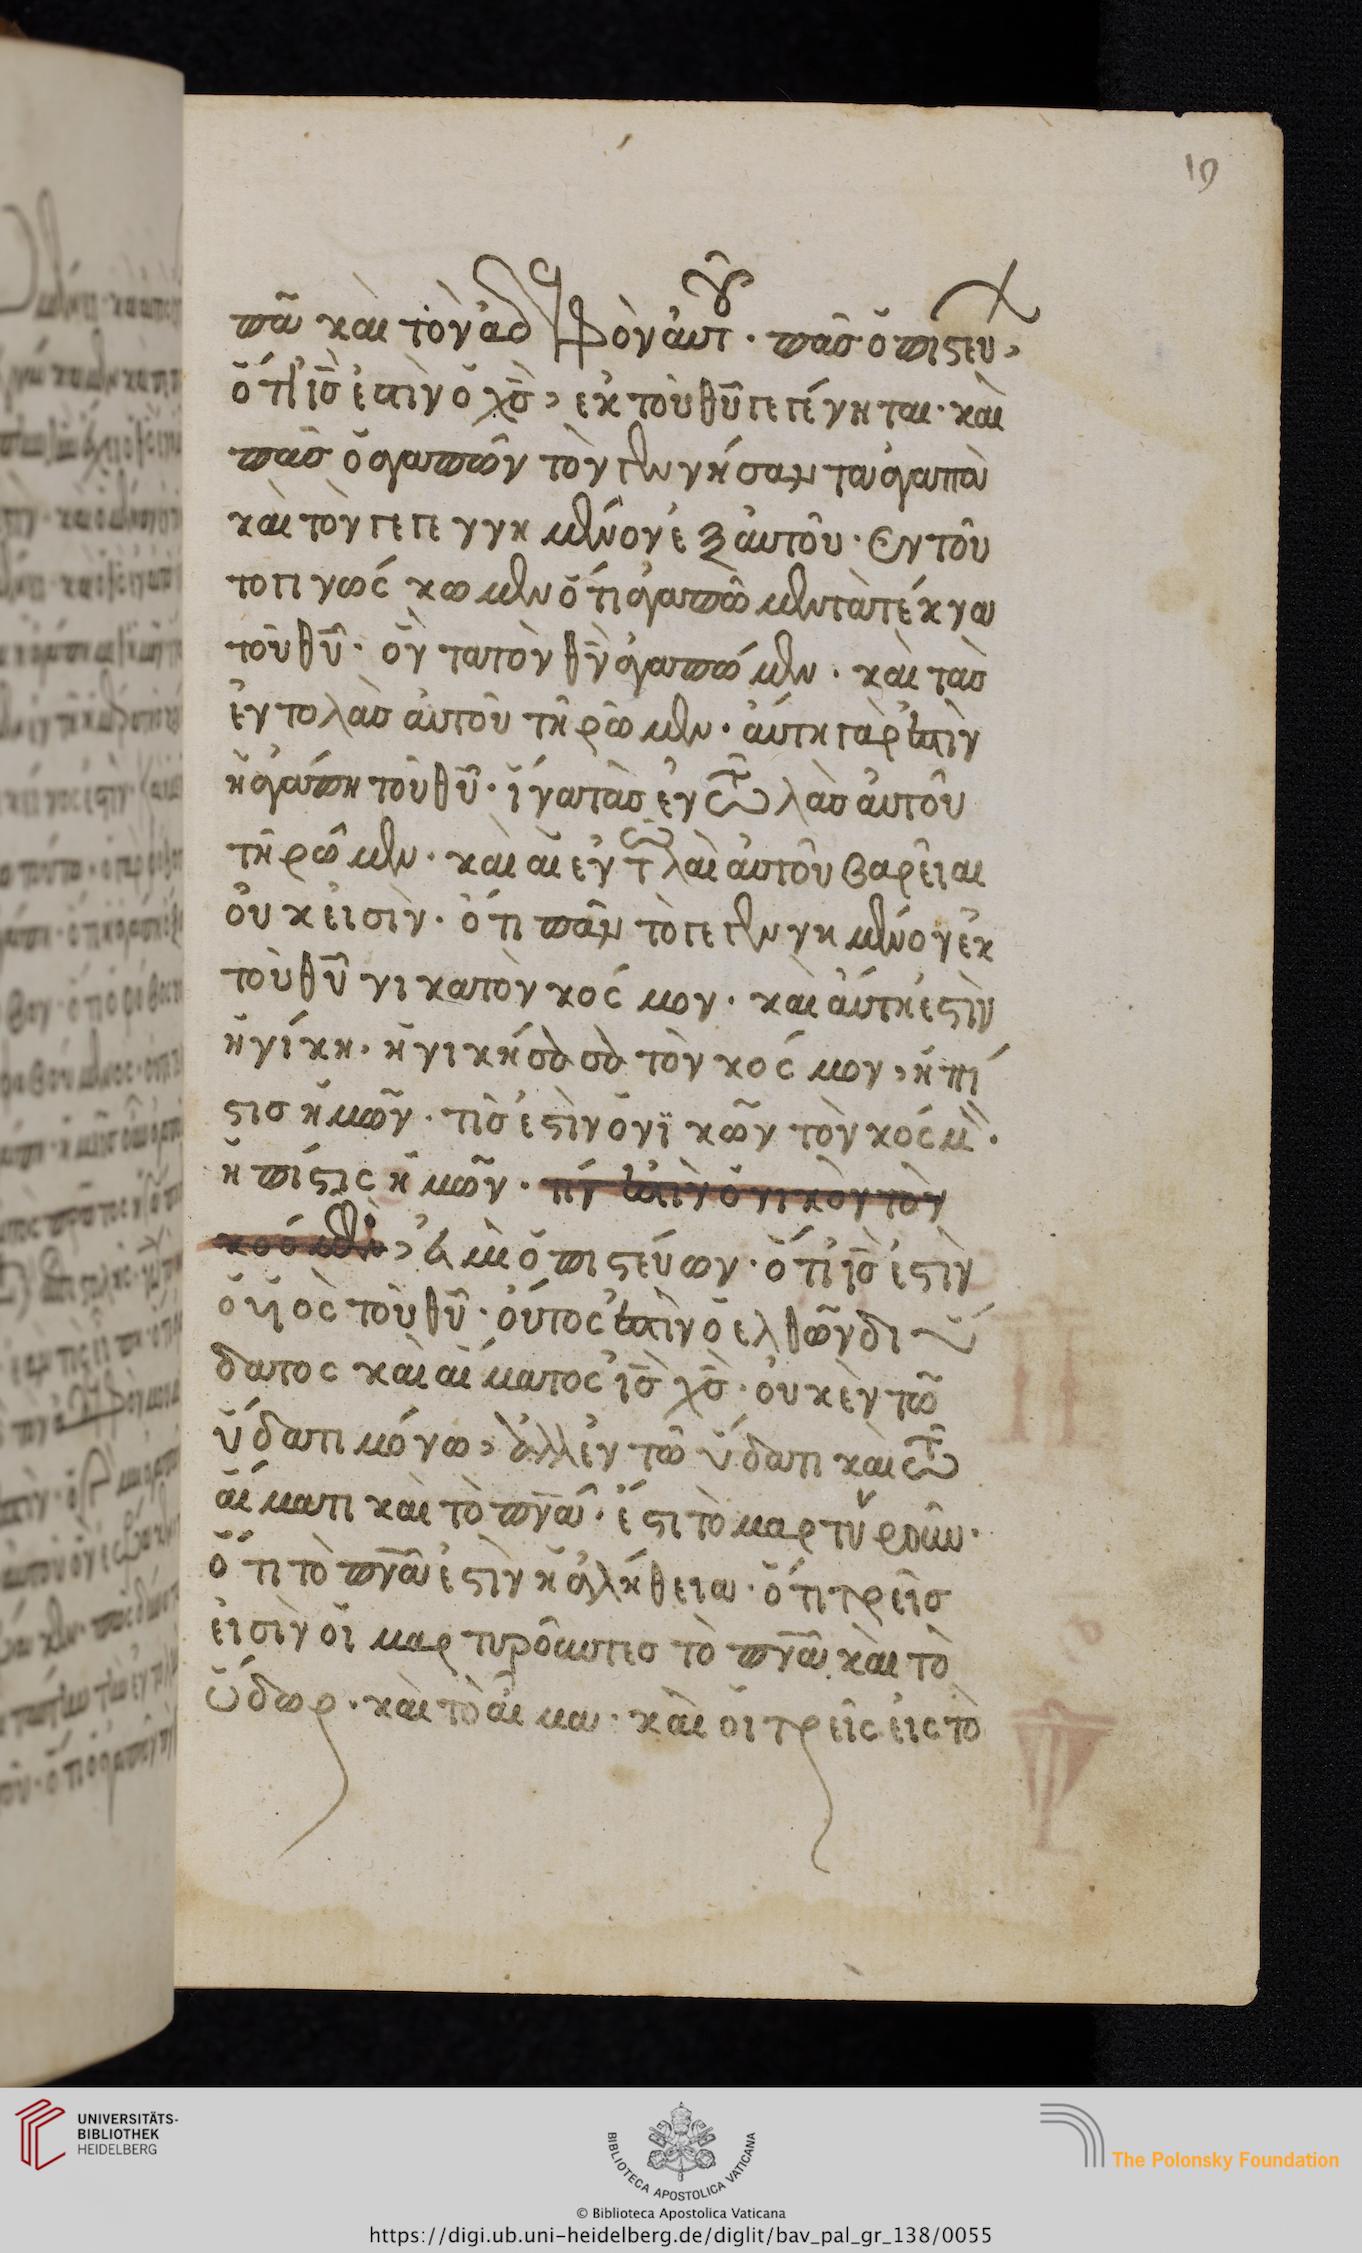 19
πᾶ καὶ τὸν ἀδελφὸν αὐτοῦ. πᾶσ ὁ πιςεύων
ὅτι ἰ̅σ̅ ἐστὶν ὁ χ̅σ̅, ἐκ τοὺ θ̅υ̅ γεγένηται. καὶ
πᾶσ ὁ ἀγαπῶν τὸν γεννήσαντα ἀγαπὰ
καὶ τὸν γεγεννημένον ἐξ αὐτοῦ. Εν τοῦ
το γινώς κωμεν ὅτι ἀγαπῶμεν τὰ τέκνα
τοῦ θ̅υ̅. ὅν τα τὸν θ̅ν̅ ἀγαπώμεν. καὶ τὰσ
ἐντολὰσ ἀυτοῦ τηρῶμεν. ἀύτη γάρ ἐστὶν
ἡ ἀγάπη τοῦ θ̅υ̅. ἵνα τὰσ ἐντολὰσ ἀυτοῦ
τηρῶμεν. καὶ αἱ εντολαὶ ἀυτοῦ βαρεῖαι
οὐκ ἐισὶν. ὅτι πᾶν τὸ γεγεννημένον ἐκ
τοὺ θ̅υ̅ νικα τὸν κόςμον. καὶ ἀύτη ἐςὶν
ἡ νίκη. ἡ νικήσασα τὸν κόςμον, ἡ πί
ςισ ἡμῶν. τὶσ ἐςὶν ὁ νϊκῶν τὸν κόςμον.
ἡ πίςις ἡμῶν. τίσ ἐστὶν ὁ νικὸν τὸν
κόσμον, ἐι μὶ ὁ πιςεύων. ὅτι ἰ̅σ̅ ἐςὶν
ὁ υἱὸς τοὺ θ̅υ̅. οὑτος ἐστὶν ὁ ελθῶν δι ὕ
δατος καὶ αἵματος ἰ̅σ̅ χ̅σ̅. ὀυκ ὲν τῶ
ὕδατι μόνω, ἀλλ ἐν τῶ ὕδατι καὶ τῶ
αἵματι καὶ τὸ πν̅ᾶ. ἔςι τὸ μαρτυροῦν.
ὅτι τὸ πν̅ᾶ ἐςὶν ἡ ἀλήθεια. ὅτι τρεῖσ
ἐισὶν οἱ μαρτυροῦντεσ τὸ πν̅ᾶ καὶ τὸ
ὕδωρ. καὶ τὸ ἇιμα. καὶ ὁι τρεῖς ἐις τὸ
UNIVERSITÄTS-
BIBLIOTHEK
HEIDELBERG
BIBLIOTECA APOSTOLICA VATICANA
The Polonsky Foundation
© Biblioteca Apostolica Vaticana
https://digi.ub.uni-heidelberg.de/diglit/bav_pal_gr_138/0055